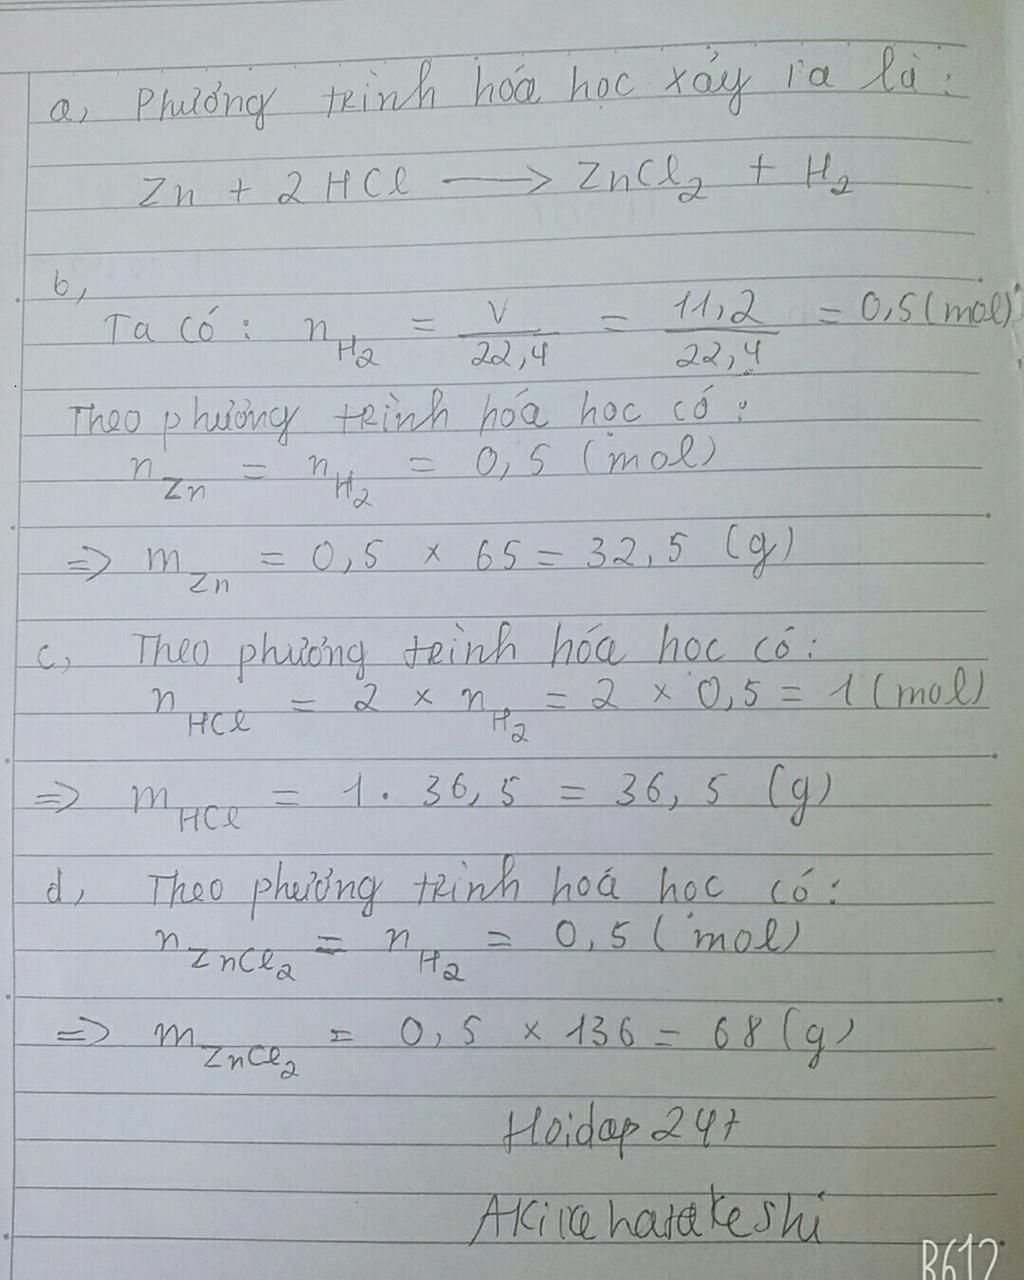 a, Phương trình hóa học xảy ra là:
Zn + 2HCl ⟶ ZnCl₂ + H₂
b,
Ta có: n_H₂ = V/22,4 = 11,2/22,4 = 0,5 (mol)
Theo phương trình hóa học có:
n_Zn = n_H₂ = 0,5 (mol)
=> m_Zn = 0,5 × 65 = 32,5 (g)
c, Theo phương trình hóa học có:
n_HCl = 2 × n_H₂ = 2 × 0,5 = 1 (mol)
=> m_HCl = 1 . 36,5 = 36,5 (g)
d, Theo phương trình hoá học có:
n_ZnCl₂ = n_H₂ = 0,5 (mol)
=> m_ZnCl₂ = 0,5 × 136 = 68 (g)
Hoidap 247
B612